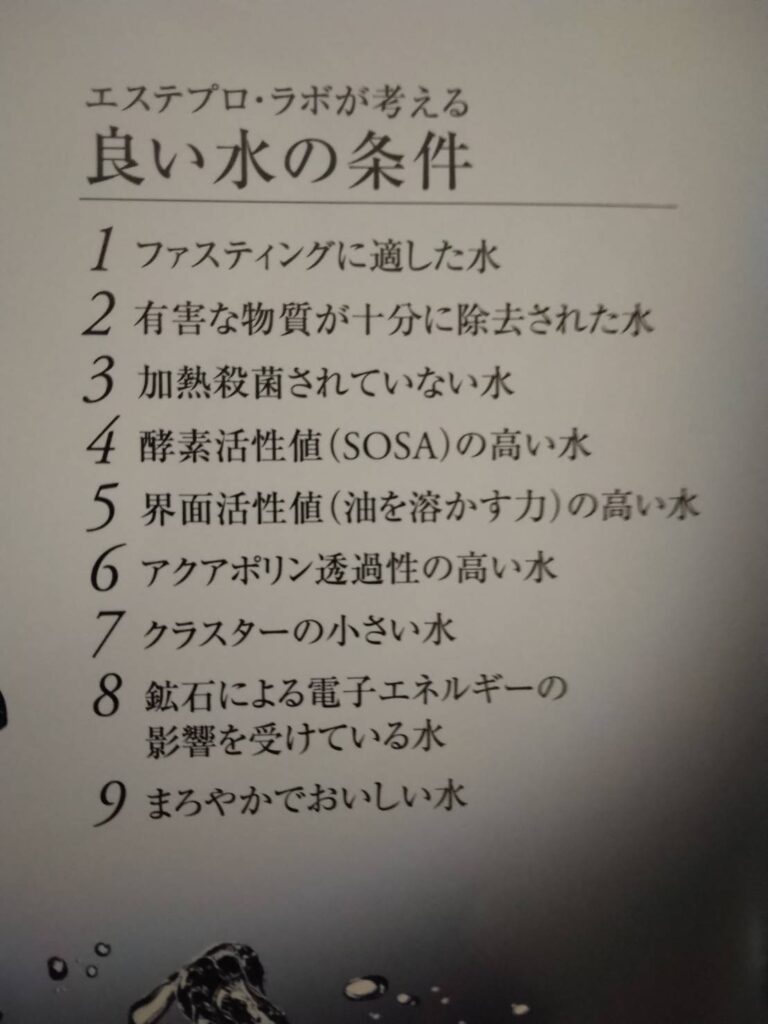 エステプロ・ラボが考える
良い水の条件
1 ファスティングに適した水
2 有害な物質が十分に除去された水
3 加熱殺菌されていない水
4 酵素活性値(SOSA)の高い水
5 界面活性値(油を溶かす力)の高い水
6 アクアポリン透過性の高い水
7 クラスターの小さい水
8 鉱石による電子エネルギーの
影響を受けている水
9 まろやかでおいしい水